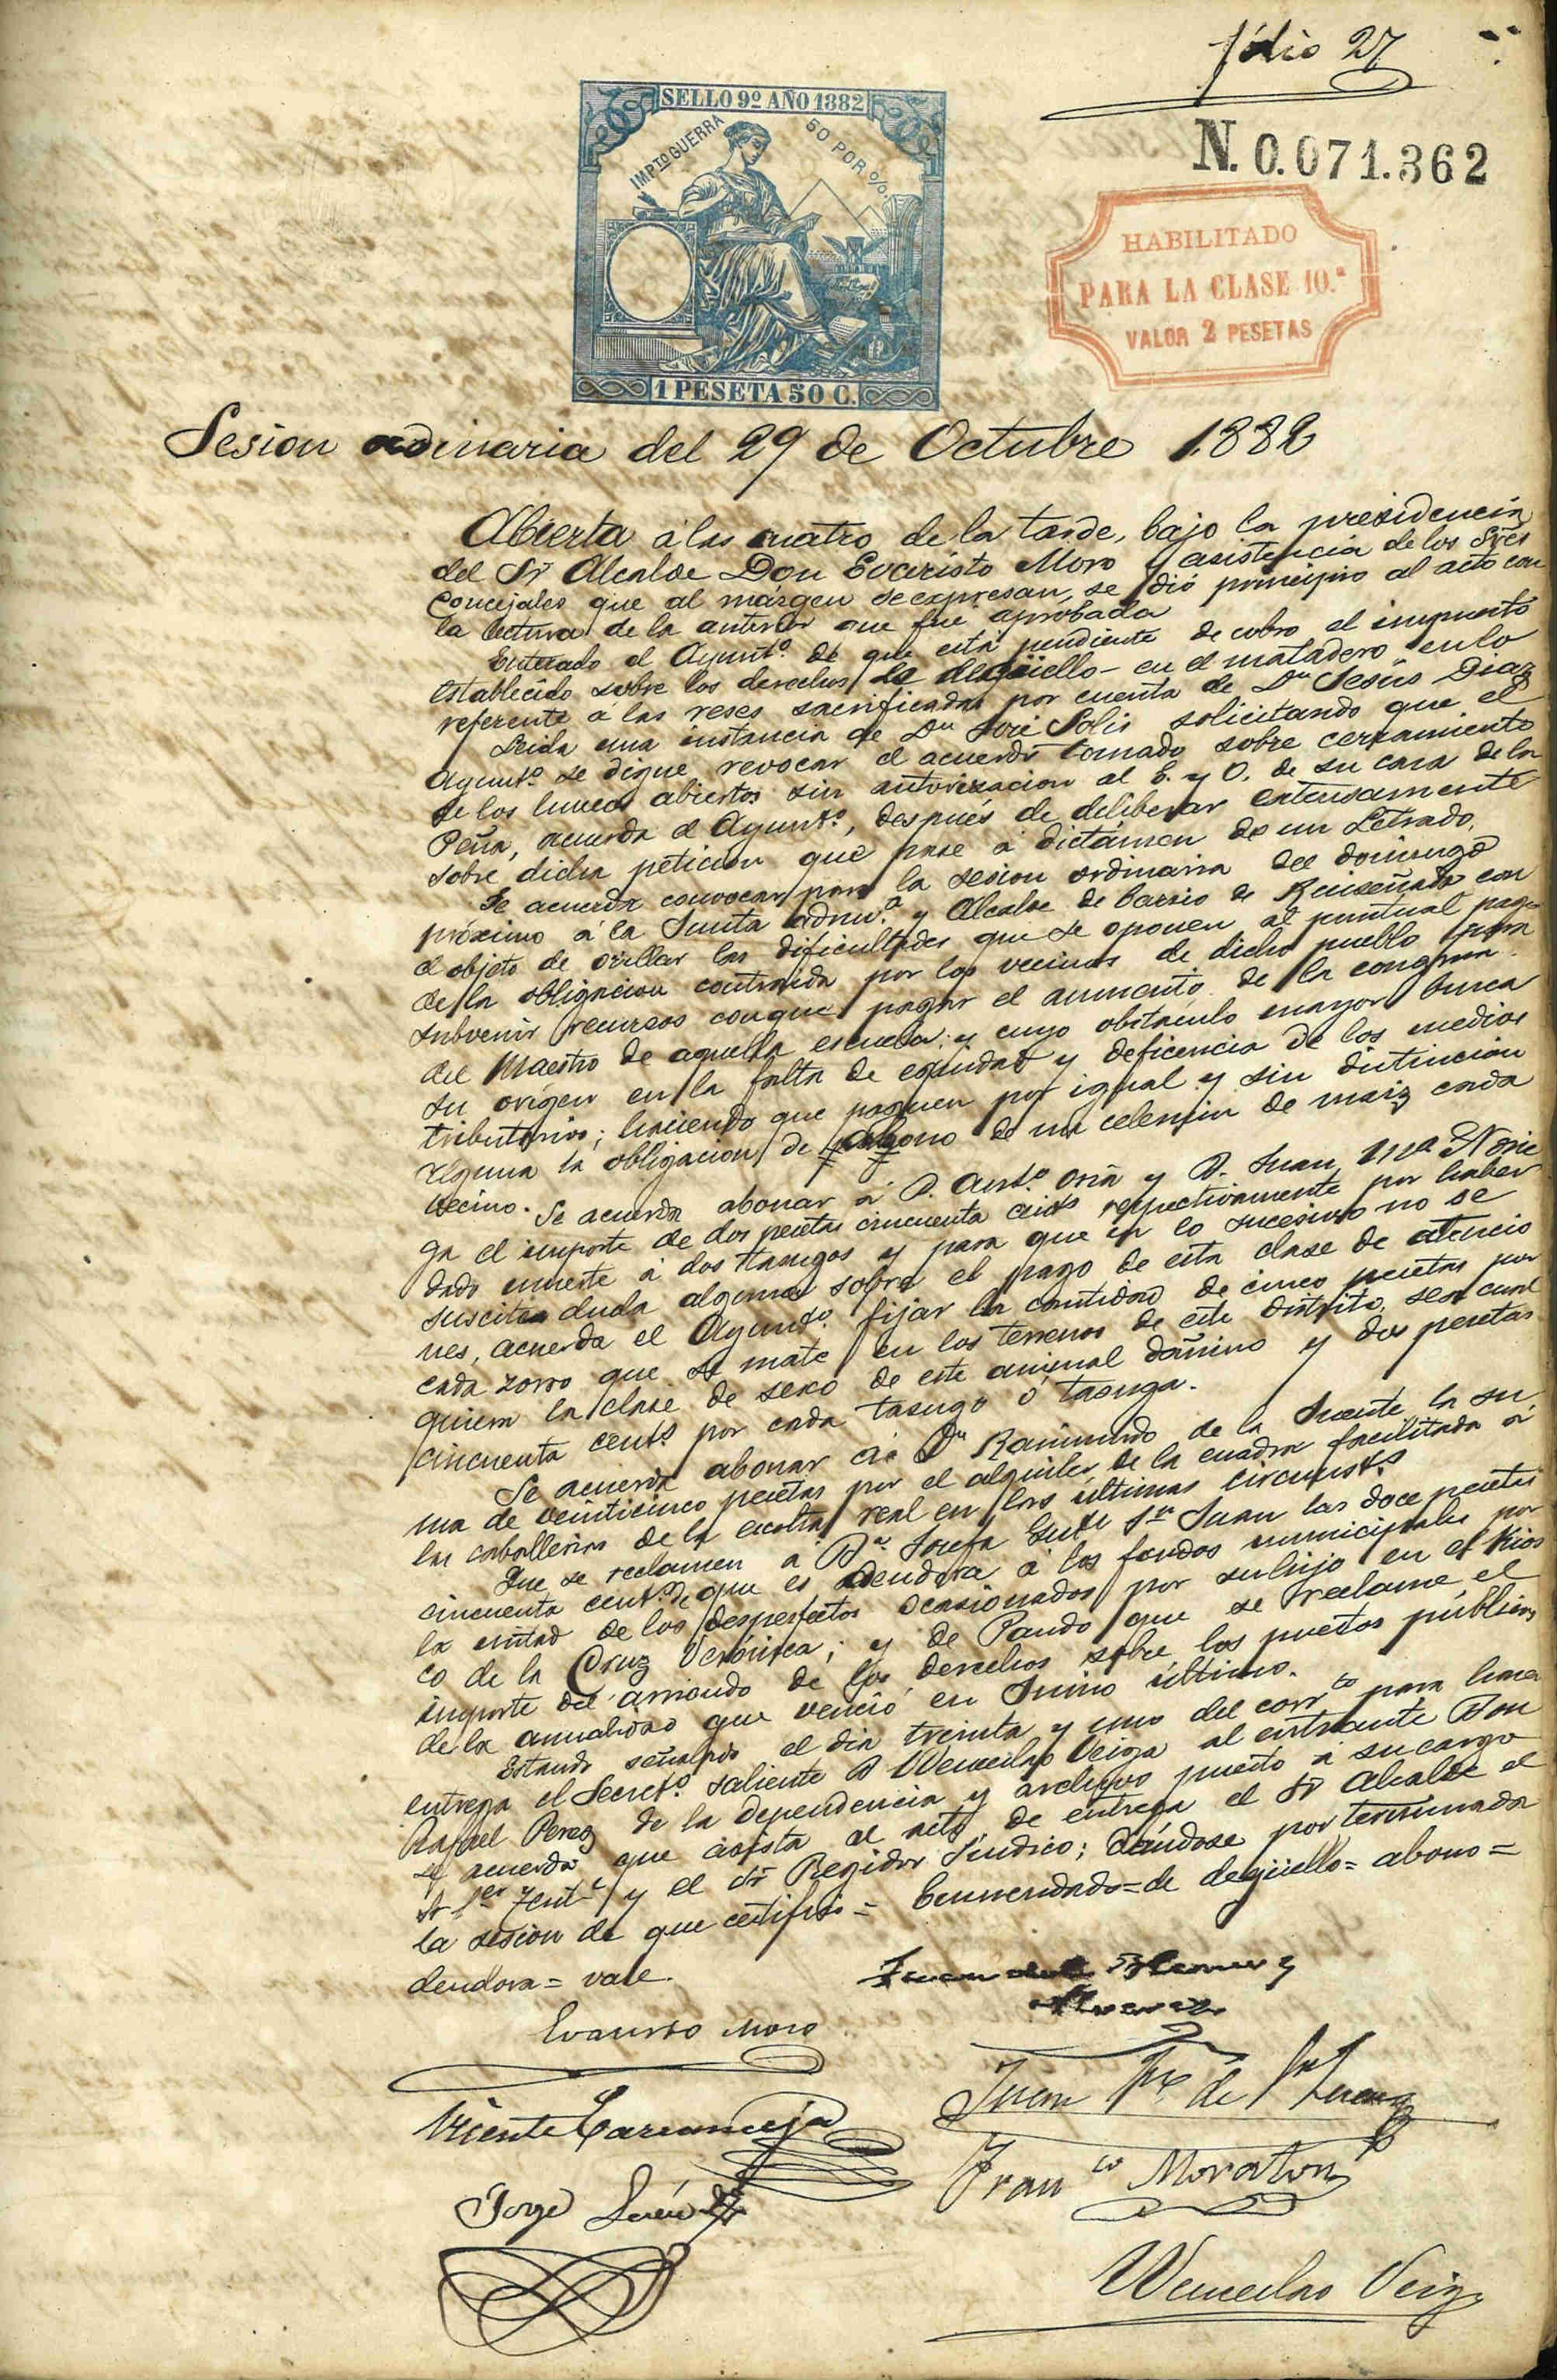 fólio 27
SELLO 9º AÑO 1882
IMPTO GUERRA 50 POR %.
N. 0.071.362
HABILITADO
PARA LA CLASE 10.ª
VALOR 2 PESETAS
1 PESETA 50 C.
Sesion ordinaria del 29 de Octubre 1882
Abierta á las cuatro de la tarde, bajo la presidencia
del Sr Alcalde Don Evaristo Moro y asistencia de los Sres
Concejales que al márgen se expresan, se dió principio al acto con
la lectura de la anterior que fue aprobada
Enterado el Ayunto. de que está pendiente de cobro el impuesto
establecido sobre los derechos de degüello en el matadero en lo
referente á las reses sacrificadas por cuenta de Dn Jesús Diaz
Leida una instancia de Dn José Solis solicitando que el
Ayunto. se digne revocar el acuerdo tomado sobre cerramiento
de los huecos abiertos sin autorizacion al E. y O. de su casa de la
Peña, acuerda el Ayunto., después de deliberar extensamente
sobre dicha peticion que pase á dictámen de un Letrado.
Se acuerda convocar para la sesion ordinaria del domingo
próximo á la Junta admva. y Alcalde de barrio de Ruiseñada con
el objeto de orillar las dificultades que se oponen al puntual pago
de la obligacion contraida por los vecinos de dicho pueblo para
subvenir recursos conque pagar el aumento de la congrua
del Maestro de aquella escuela; y cuyo obstáculo mayor busca
su orígen en la falta de equidad y deficencia de los medios
tributarios; haciendo que paguen por igual y sin distincion
alguna la obligacion de abono de un celemin de maiz cada
vecino. Se acuerda abonar á D. Anto. Oria y D. Juan Mª Norie
ga el importe de dos pesetas cincuenta cents respectivamente por haber
dado muerte á dos tasugos y para que en lo sucesivo no se
suscite duda alguna sobre el pago de esta clase de atencio
nes, acuerda el Ayunto. fijar la cantidad de cinco pesetas por
cada zorro que se mate en los terrenos de este distrito, sea cual
quiera la clase de sexo de este animal dañino y dos pesetas
cincuenta cents. por cada tasugo ó tasuga.
Se acuerda abonar á Dn Raimundo de la Fuente la su
ma de veinticinco pesetas por el alquiler de la cuadra facilitada á
las caballerias de la escolta real en las últimas circunsts
Que se reclamen á Da Josefa Sn Juan las doce pesetas
cincuenta cents. de que es deudora á los fondos municipales por
la mitad de los desperfectos ocasionados por su hijo en el Kios
co de la Cruz Verónica; y de Pando que se reclame el
importe del arriendo de los derechos sobre los puestos públicos
de la anualidad que venció en Junio último.
Estando señalado el dia treinta y uno del corrto para hacer
entrega el Secreto. saliente D Wenceslao Veiga al entrante Don
Rafael Perez de la dependencia y archivo puesto á su cargo
se acuerda que asista al acto de entrega el Sr Alcalde el
Sr 1er Tente y el Sr Regidor Síndico; dándose por terminada
la sesion de que certifico = Enmendado = de degüello = abono =
deudora = vale.
Evaristo Moro
Vicente Carranceja
Juan de Sn Juan
Franco Moraton
Jorge
Wenceslao Veiga